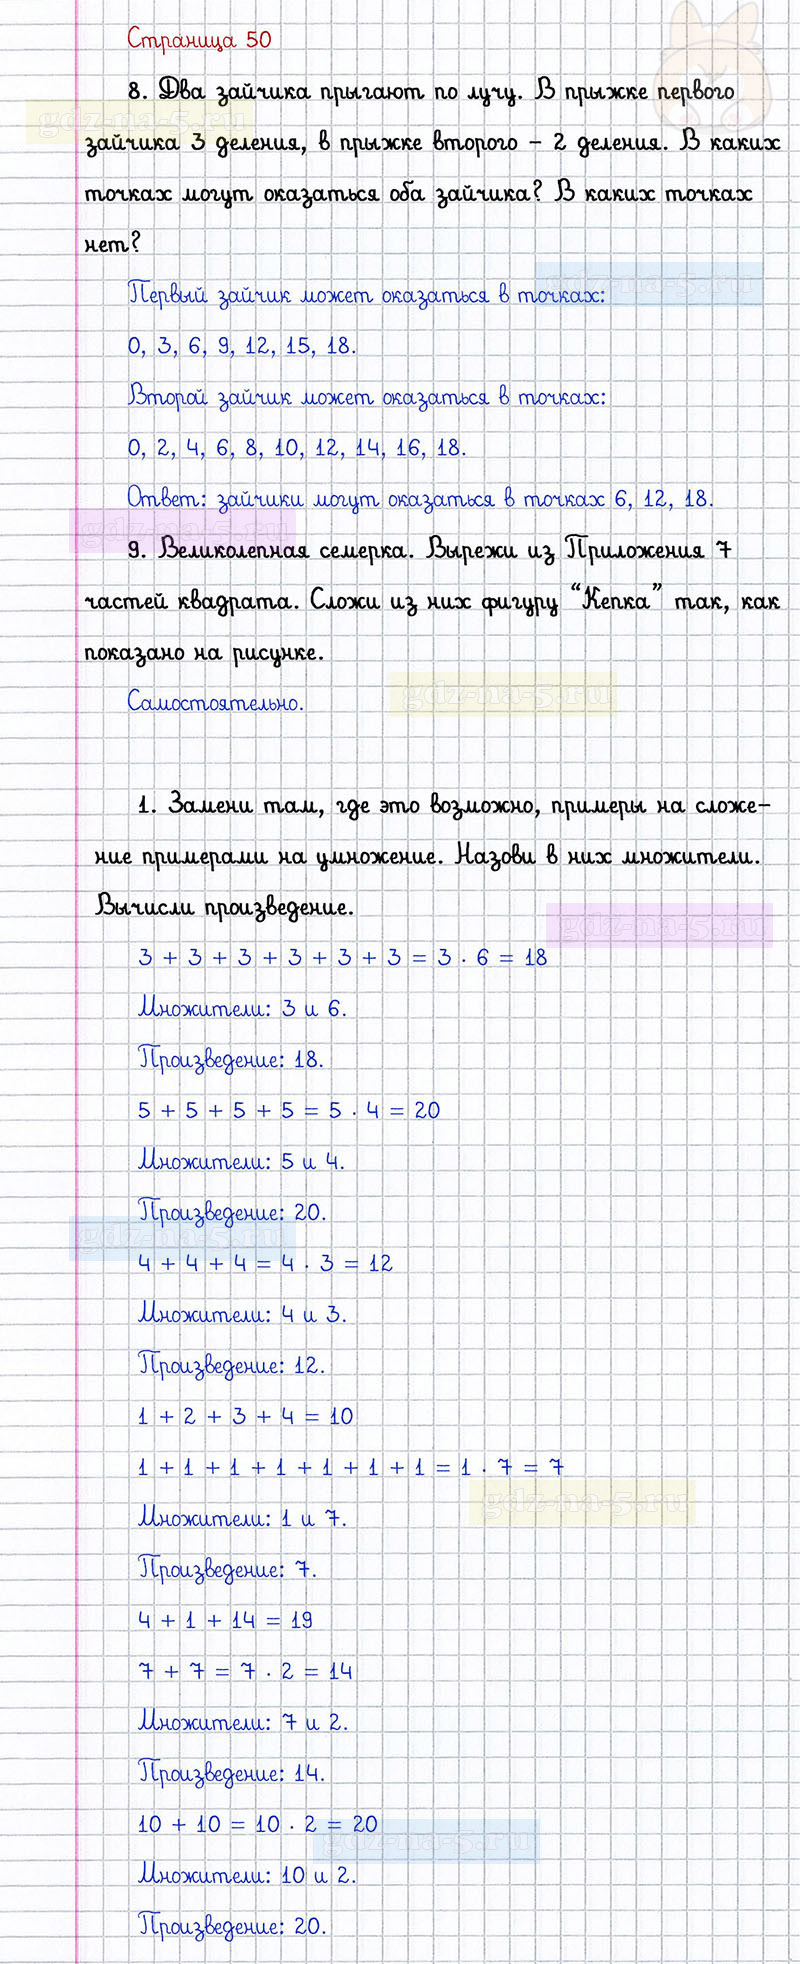 Страница 50
8. Два зайчика прыгают по лучу. В прыжке первого
gdz-na-5.ru
зайчика 3 деления, в прыжке второго – 2 деления. В каких
точках могут оказаться оба зайчика? В каких точках
нет?
gdz-na-5.ru
Первый зайчик может оказаться в точках:
0, 3, 6, 9, 12, 15, 18.
Второй зайчик может оказаться в точках:
0, 2, 4, 6, 8, 10, 12, 14, 16, 18.
Ответ: зайчики могут оказаться в точках 6, 12, 18.
gdz-na-5.ru
9. Великолепная семерка. Вырежи из Приложения 7
частей квадрата. Сложи из них фигуру “Кепка” так, как
показано на рисунке.
gdz-na-5.ru
Самостоятельно.
1. Замени там, где это возможно, примеры на сложе-
ние примерами на умножение. Назови в них множители.
Вычисли произведение.
gdz-na-5.ru
3 + 3 + 3 + 3 + 3 + 3 = 3 · 6 = 18
Множители: 3 и 6.
Произведение: 18.
5 + 5 + 5 + 5 = 5 · 4 = 20
Множители: 5 и 4.
Произведение: 20.
gdz-na-5.ru
4 + 4 + 4 = 4 · 3 = 12
Множители: 4 и 3.
Произведение: 12.
1 + 2 + 3 + 4 = 10
1 + 1 + 1 + 1 + 1 + 1 + 1 = 1 · 7 = 7
gdz-na-5.ru
Множители: 1 и 7.
Произведение: 7.
4 + 1 + 14 = 19
7 + 7 = 7 · 2 = 14
Множители: 7 и 2.
Произведение: 14.
10 + 10 = 10 · 2 = 20
gdz-na-5.ru
Множители: 10 и 2.
Произведение: 20.